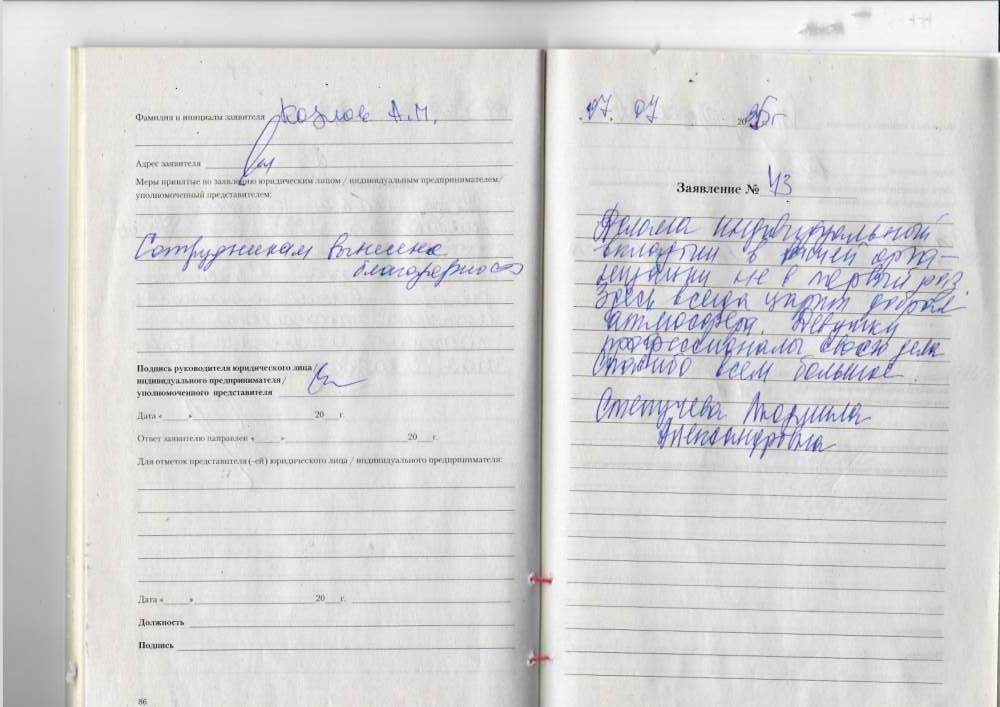 Фамилия и инициалы заявителя Козлов А.М.
Адрес заявителя
Меры принятые по заявлению юридическим лицом / индивидуальным предпринимателем/
уполномоченный представителем:
Сотрудникам вынесена
благодарность
Подпись руководителя юридического лица/
индивидуального предпринимателя/
уполномоченного представителя
Дата «____»____20__г.
Ответ заявителю направлен «____»____20__г.
Для отметок представителя (-ей) юридического лица / индивидуального предпринимателя:
Дата «____»____20__г.
Должность
Подпись
86
07. 07 2025г
Заявление № 43
Делала индивидуальный
вкладыши в орга-
низации не в первый раз.
Здесь всегда царит добрая
атмосфера. Девушки
профессионалы своего дела
Спасибо всем большое.
Людмила
Александровна